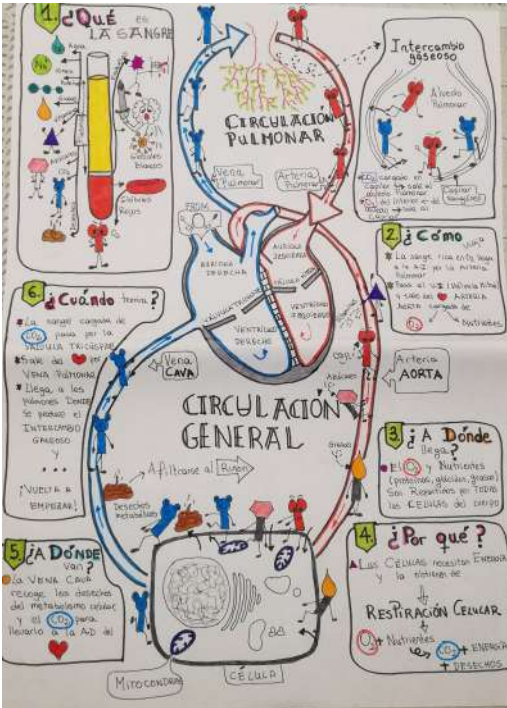 1. ¿Qué es
LA SANGRE
Agua
Globulos
Blancos
Glóbulos
Rojos
CO₂
CIRCULACIÓN
PULMONAR
Vena
Pulmonar
Arteria
Pulmonar
Intercambio
gaseoso
Alveolo
Pulmonar
CO₂ cargado en
capilar sale al
alveolo Pulmonar
O₂ del interior
Capilar
Sanguíneo
2. ¿Cómo
La sangre rica en O₂ llega
a la A.I por la Arteria
Pulmonar
y sale del ARTERIA
AORTA cargada de
O₂ y Nutrientes
AURÍCULA
DERECHA
AURÍCULA
IZQUIERDA
VÁLVULA TRICÚSPIDE
VÁLVULA MITRAL
VENTRÍCULO
DERECHO
VENTRÍCULO
IZQUIERDO
6. ¿Cuándo termina?
La sangre cargada de
CO₂ pasa por la
VÁLVULA TRICÚSPIDE
Sale del por
VENA PULMONAR
Llega a los
pulmones DONDE
Se produce el
INTERCAMBIO
GASEOSO
y
...
¡VUELTA A
EMPEZAR!
Vena
CAVA
Arteria
AORTA
CIRCULACIÓN
GENERAL
Azúcares
Grasas
A filtrarse al Riñón
Desechos
metabólicos
3. ¿A Dónde
llega?
El O₂ y Nutrientes
(proteínas, glúcidos, grasas)
Son Repartidos por TODAS
las CÉLULAS del cuerpo
4. ¿Por qué?
Las CÉLULAS necesitan ENERGÍA
y la obtienen de
RESPIRACIÓN CELULAR
O₂ + Nutrientes
CO₂ + ENERGÍA
+ DESECHOS
5. ¿A DÓNDE
van?
La VENA CAVA
recoge los desechos
del metabolismo celular
y el CO₂ para
llevarlo a la AD del
MITOCONDRIA
CÉLULA